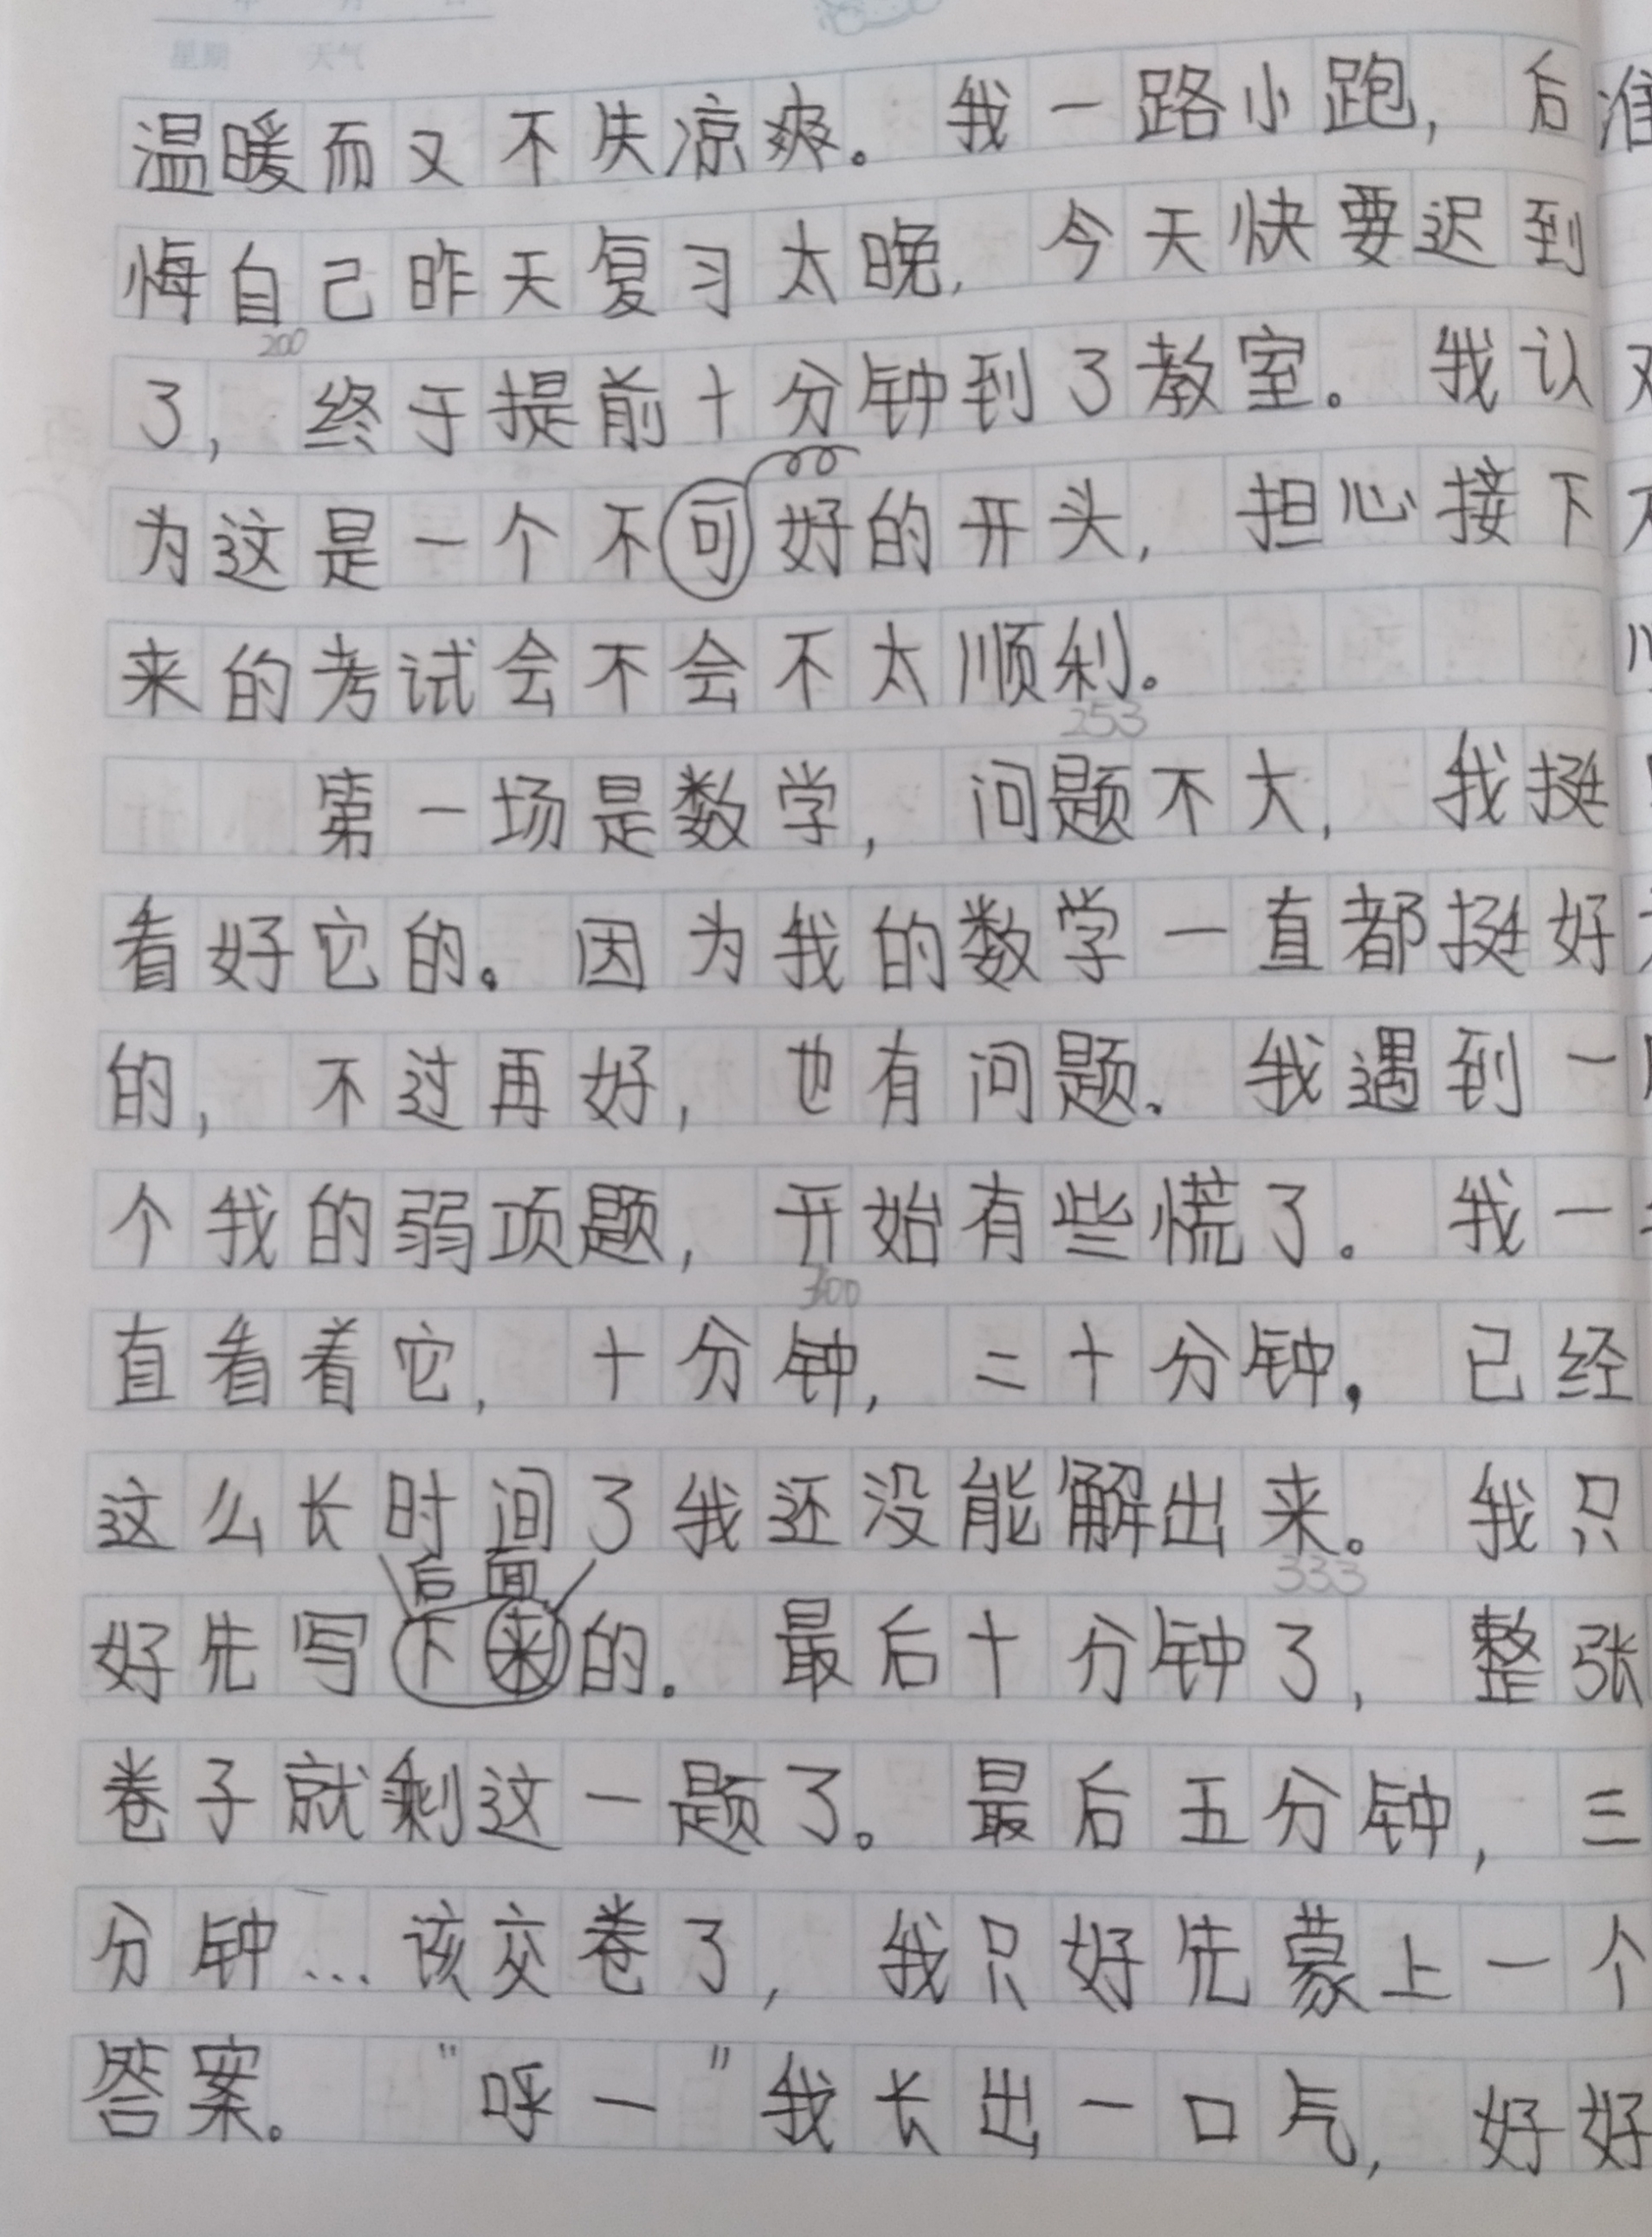 星期 天气
温暖而又不失凉爽。我一路小跑，后
悔自己昨天复习太晚，今天快要迟到
200
了，终于提前十分钟到了教室。我认
为这是一个不可好的开头，担心接下
来的考试会不会不太顺利。
253
第一场是数学，问题不大，我挺
看好它的。因为我的数学一直都挺好
的，不过再好，也有问题。我遇到一
个我的弱项题，开始有些慌了。我一
300
直看着它，十分钟，二十分钟，已经
这么长时间了我还没能解出来。我只
333
后面
好先写下来的。最后十分钟了，整张
卷子就剩这一题了。最后五分钟，三
分钟…该交卷了，我只好先蒙上一个
答案。“呼一”我长出一口气，好好